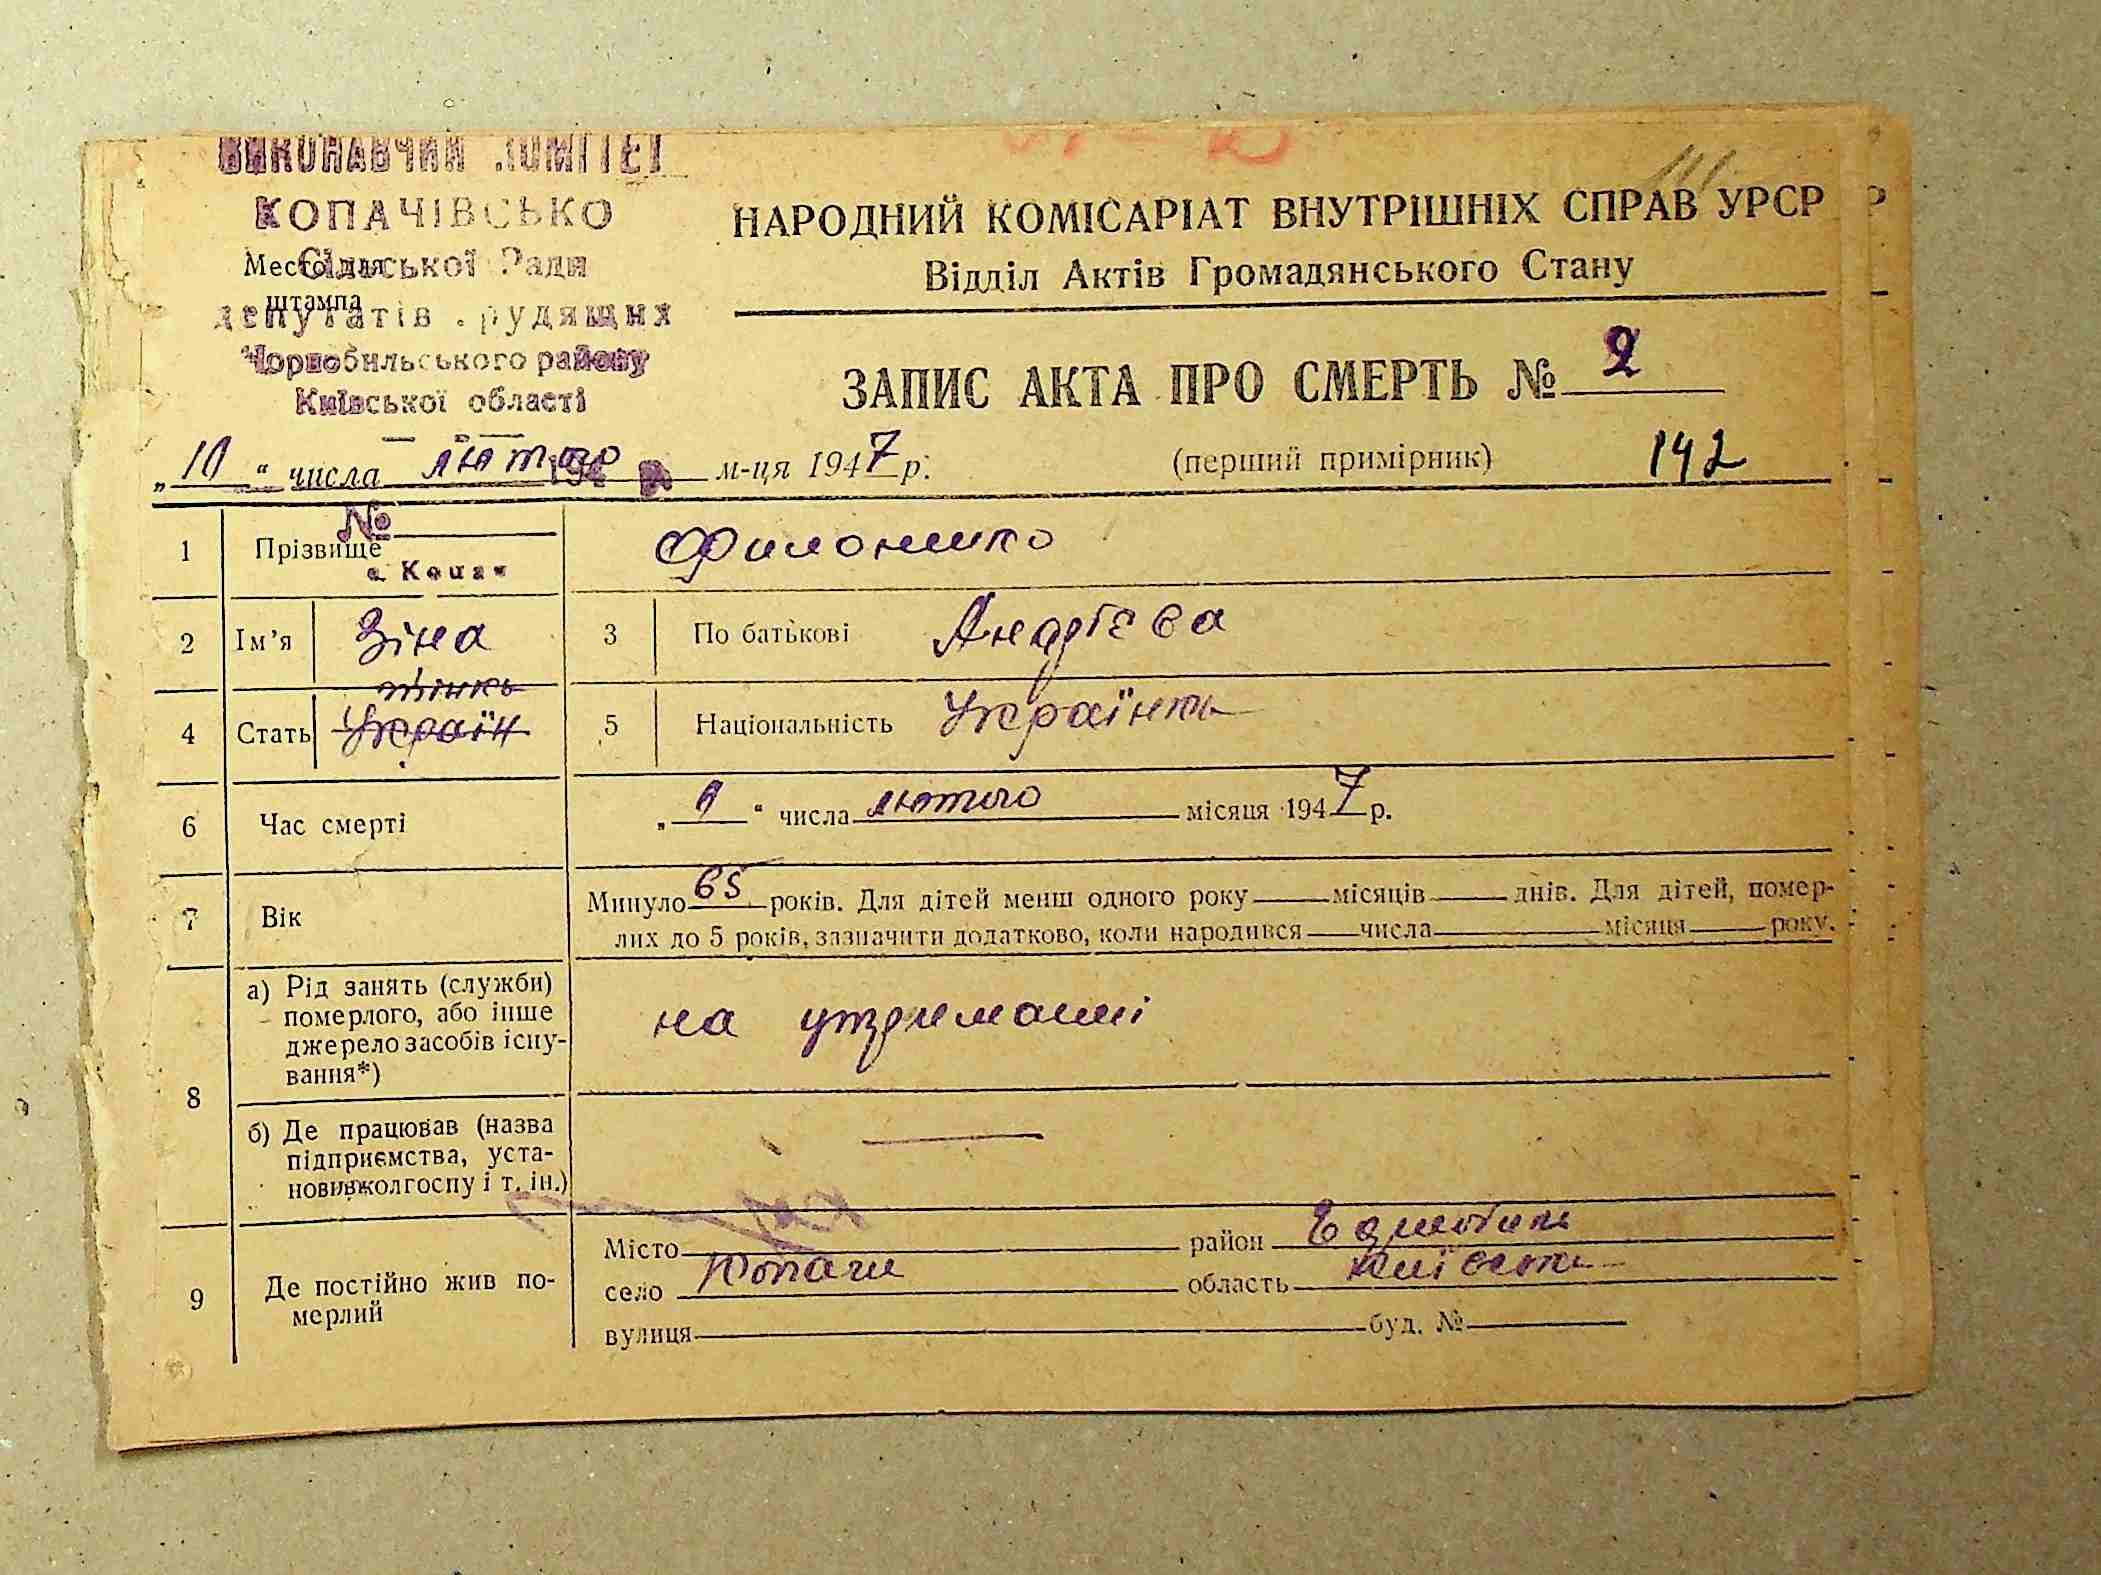 ВИКОНАВЧИЙ КОМІТЕТ
КОПАЧІВСЬКО
Сільської Ради
Место для
штампа
депутатів трудящих
Чорнобильського району
Київської області
НАРОДНИЙ КОМІСАРІАТ ВНУТРІШНІХ СПРАВ УРСР
Відділ Актів Громадянського Стану
ЗАПИС АКТА ПРО СМЕРТЬ № 2
„10“ числа лютого м-ця 1947 р.
(перший примірник) 142
№
1 Прізвище Филоненко
2 Ім’я Зіна 3 По батькові Андрієва
4 Стать Україн 5 Національність Українка
6 Час смерті „ “ числа лютого місяця 1947 р.
7 Вік Минуло 65 років. Для дітей менш одного року місяців днів. Для дітей, помер-
лих до 5 років, зазначити додатково, коли народився числа місяця року.
8 а) Рід занять (служби)
померлого, або інше
джерело засобів існу-
вання*)
на утриманні
б) Де працював (назва
підприємства, уста-
нови, колгоспу і т. ін.) —
9 Де постійно жив по-
мерлий
Місто район
село Копачи область Київська
вулиця буд. №